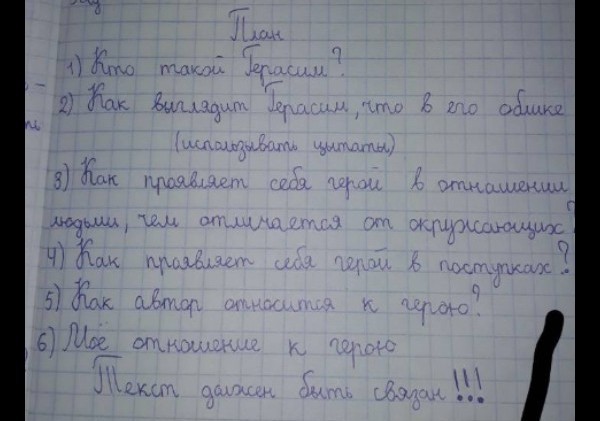 План
1) Кто такой Герасим?
2) Как выглядит Герасим, что в его облике
(использывать цытаты)
3) Как проявляет себя герой в отнашении
людьми, чем отличается от окружающих?
4) Как проявляет себя герой в поступках?
5) Как автор относится к герою?
6) Моё отношение к герою
Текст должен быть связан!!!